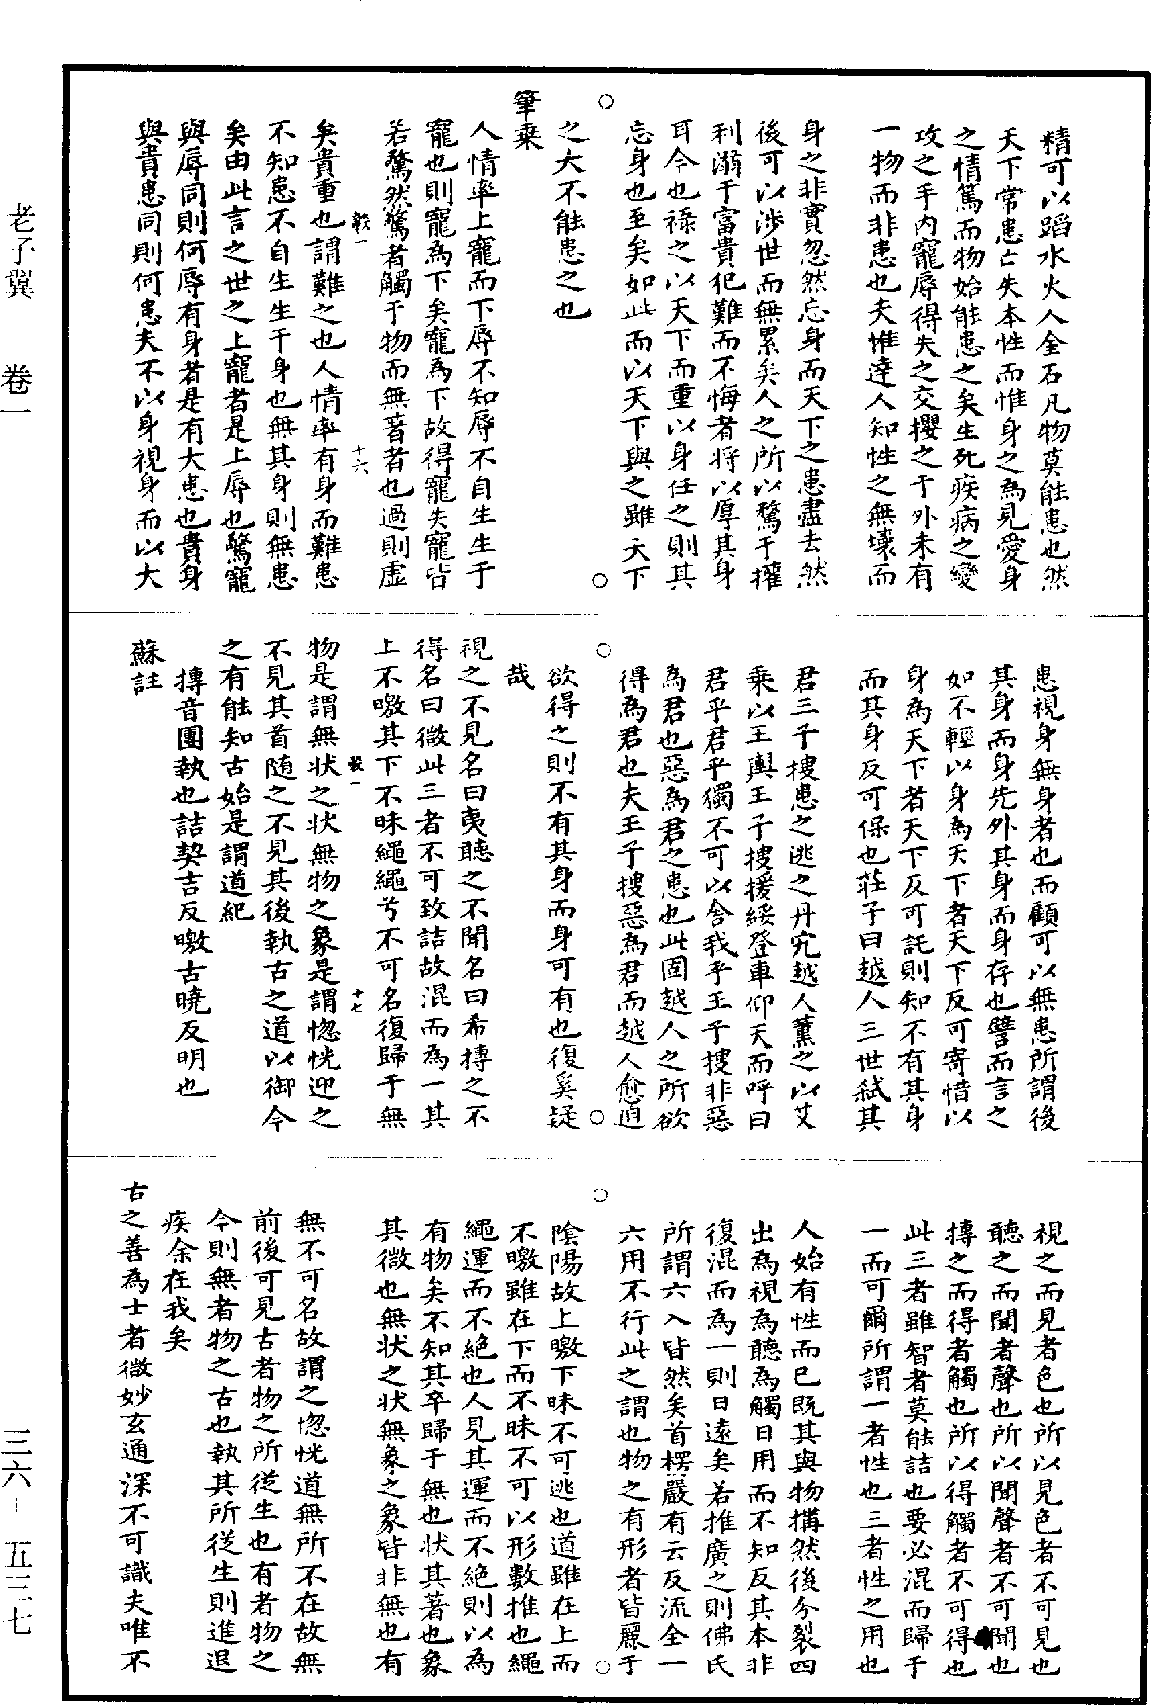 精可以蹈水火入金石凡物莫能患也然
天下常患亡失本性而惟身之為見愛身
之情篤而物始能患之矣生死疾病之變
攻之于內寵辱得失之交攖之于外未有
一物而非患也夫惟達人知性之無壞而
身之非實忽然忘身而天下之患盡去然
後可以涉世而無累矣人之所以驚于權
利溺于富貴犯難而不悔者將以厚其身
耳今也祿之以天下而重以身任之則其
忘身也至矣如此而以天下與之雖天下
之大不能患之也
筆乘
人情率上寵而下辱不知辱不自生生于
寵也則寵為下矣寵為下故得寵失寵皆
若驚然驚者觸于物而無著者也過則虛
矣貴重也謂難之也人情率有身而難患
不知患不自生生于身也無其身則無患
矣由此言之世之上寵者是上辱也驚寵
與辱同則何辱有身者是有大患也貴身
與貴患同則何患夫不以身視身而以大
患視身無身者也而顧可以無患所謂後
其身而身先外其身而身存也譬而言之
如不輕以身為天下者天下反可寄惜以
身為天下者天下反可託則知不有其身
而其身反可保也莊子曰越人三世弒其
君王子搜患之逃之丹穴越人薰之以艾
乘以王輿王子搜援綏登車仰天而呼曰
君乎君乎獨不可以舍我乎王子搜非惡
為君也惡為君之患也此固越人之所欲
得為君也夫王子搜惡為君而越人愈迫
欲得之則不有其身而身可有也復奚疑
哉
視之不見名曰夷聽之不聞名曰希摶之不
得名曰微此三者不可致詰故混而為一其
上不曒其下不昧繩繩兮不可名復歸于無
物是謂無狀之狀無物之象是謂惚恍迎之
不見其首隨之不見其後執古之道以御今
之有能知古始是謂道紀
摶音團執也詰契吉反曒古曉反明也
蘇註
視之而見者色也所以見色者不可見也
聽之而聞者聲也所以聞聲者不可聞也
摶之而得者觸也所以得觸者不可得也
此三者雖智者莫能詰也要必混而歸于
一而可爾所謂一者性也三者性之用也
人始有性而已既其與物搆然後分裂四
出為視為聽為觸日用而不知反其本非
復混而為一則日遠矣若推廣之則佛氏
所謂六入皆然矣首楞嚴有云反流全一
六用不行此之謂也物之有形者皆麗于
陰陽故上曒下昧不可逃也道雖在上而
不曒雖在下而不昧不可以形數推也繩
繩運而不絕也人見其運而不絕則以為
有物矣不知其卒歸于無也狀其著也象
其微也無狀之狀無象之象皆非無也有
無不可名故謂之惚恍道無所不在故無
前後可見古者物之所從生也有者物之
今則無者物之古也執其所從生則進退
疾徐在我矣
古之善為士者微妙玄通深不可識夫唯不
老子翼 卷一
三六-五三七
十六
十七